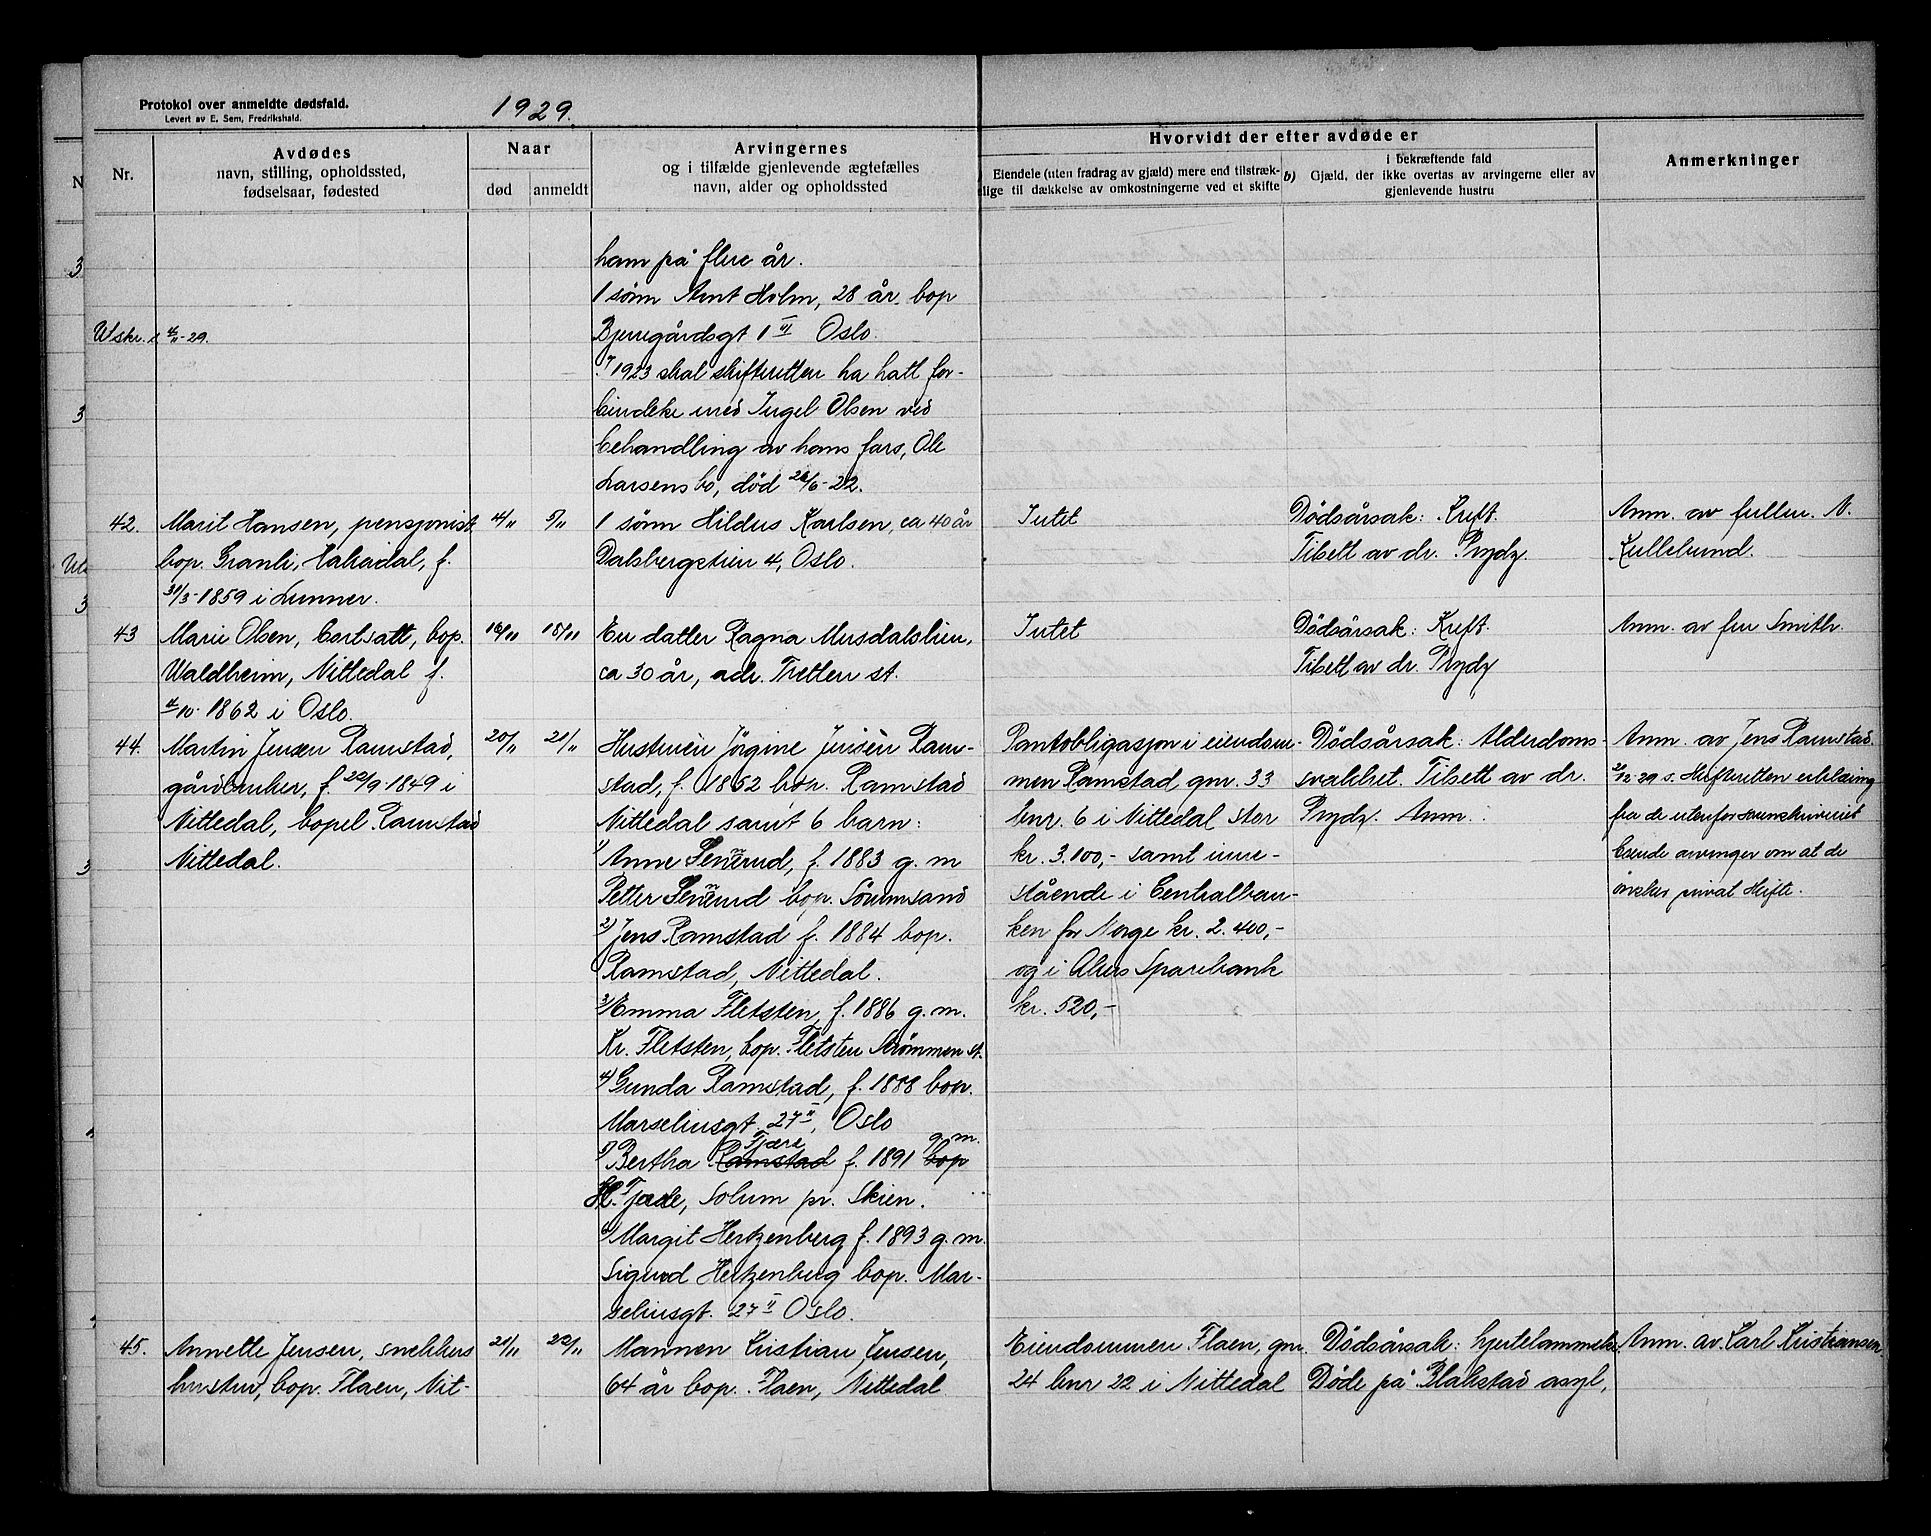 Protokol over anmeldte dødsfald.
Levert av E. Sem, Fredrikshald.
1929.
Nr.
Avdødes
navn, stilling, opholdssted,
fødselsaar, fødested
Naar
død
anmeldt
Arvingernes
og i tilfælde gjenlevende ægtefælles
navn, alder og opholdssted
Hvorvidt der efter avdøde er
Eiendele (uten fradrag av gjæld) mere end tilstræk-
lige til dækkelse av omkostningerne ved et skifte
b)
i bekræftende fald
Gjæld, der ikke overtas av arvingerne eller av
gjenlevende hustru
Anmerkninger
ham på flere år.
1 sønn Arnt Holm, 28 år bop
Bjerregårdsgt 1 III Oslo.
I 1923 skal skifteretten ha hatt for-
bindelse med Ingel Olsen ved
behandling av hans fars, Ole
Larsens bo, død 26/6-22.
Utskr. -29.
42.
Marit Hansen, pensjonist
bop. Granli, Hakadal, f.
31/3-1859 i Lunner.
4/11
5/11
1 sønn Hildus Karlsen, ca 40 år
Dalsbergstien 4, Oslo.
Intet
Dødsårsak: Kreft.
Tilsett av dr. Prydz.
Anm. av fullm. N.
Kullelund.
43
Marie Olsen, bortsatt, bop.
Waldheim, Nittedal f.
/10-1862 i Oslo.
16/11
18/11
En datter Ragna Musdalslien,
ca 30 år, adr. Tretten st.
Intet
Dødsårsak: Kreft.
Tilsett av dr. Prydz
Anm. av fru Smith.
44.
Martin Jensen Ramstad,
gårdbruker, f. 22/9-1849 i
Nittedal, bopel Ramstad
Nittedal.
20/11
21/11
Hustruen Jørgine Jensen Ram-
stad, f. 1852 bop. Ramstad
Nittedal samt 6 barn:
1) Anne f. 1883 g. m
Petter bop. Sørumsand
2) Jens Ramstad f. 1884 bop.
Ramstad, Nittedal.
3) Emma Fletsten, f. 1886 g. m.
Kr. Fletsten, bop. Fletsten Strømmen st.
4) Gunda Ramstad, f. 1888 bop.
Marseliusgt. 27 II, Oslo
5) Bertha Ramstad Tjære f. 1891 bop g. m.
Tjære, Solum pr. Skien.
6) Margit Hertzenberg f. 1893 g. m.
Sigurd Hertzenberg bop. Mar-
seliusgt. 27 II Oslo.
Pantobligasjon i eiendom-
men Ramstad gnr. 33
bnr. 6 i Nittedal stor
kr. 3.100,- samt inne-
stående i Centralban-
ken for Norge kr. 2.400,-
og i Akers Sparebank
kr. 520,-
Dødsårsak: Alderdoms-
svakhet. Tilsett av dr.
Prydz. Anm.
Anm. av Jens Ramstad.
/12-29 s. skifteretten erklæring
fra de utenfor sorenskriveriet
boende arvinger om at de
ønsker privat skifte.
45.
Annette Jensen, snekkers
hustru, bop. Flaen, Nit-
21/11
22/11
Mannen Kristian Jensen,
64 år bop. Flaen, Nittedal
Eiendommen Flaen, gnr.
24 bnr 22 i Nittedal
Dødsårsak: hjertelammelse
Døde på Blakstad asyl,
Anm. av Karl Kristiansen.